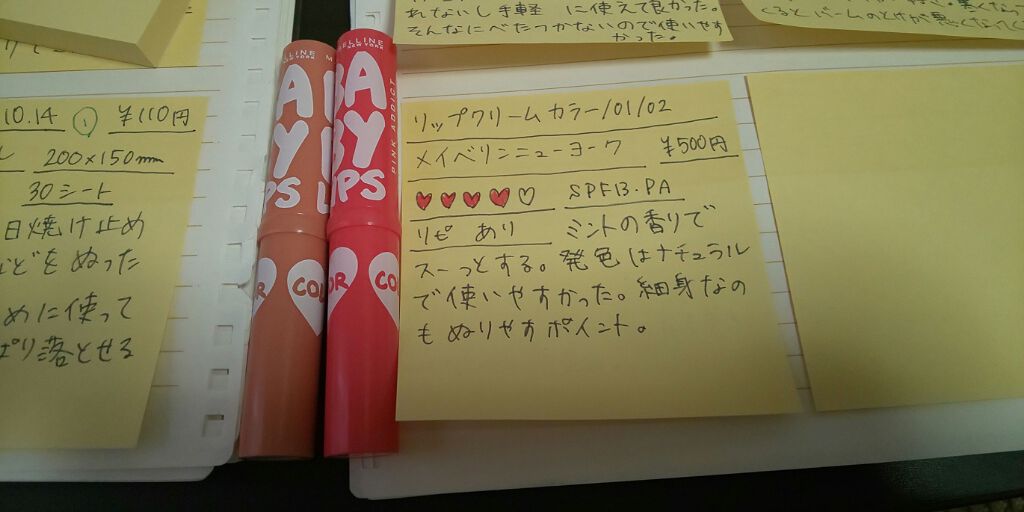 れないし手軽に使えて良かった。
そんなにべたつかないので使いやす
かった。
10.14 ① ¥110円
200×150mm
30シート
日焼け止め
などをぬった
めに使って
落とせる
MAYBELLINE
NEW YORK
BABY
LIPS
COLOR
PINK ADDICT
リップクリームカラー/01/02
メイベリンニューヨーク ¥500円
♥♥♥♥♡ SPF13.PA
リピ あり ミントの香りで
スーっとする。発色はナチュラル
で使いやすかった。細身なの
もぬりやすポイント。